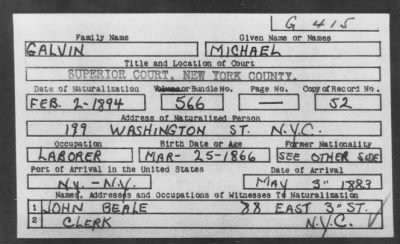 G 415
Family Name Given Name or Names
GALVIN MICHAEL
Title and Location of Court
SUPERIOR COURT, NEW YORK COUNTY.
Date of Naturalization Volume or Bundle No. Page No. Copy of Record No.
FEB. 2-1894 566 — 52
Address of Naturalized Person
199 WASHINGTON ST. N.Y.C.
Occupation Birth Date or Age Former Nationality
LABORER MAR- 25-1866 SEE OTHER SIDE
Port of Arrival in the United States Date of Arrival
N.Y. - N.Y. MAY 3" 1883
Names, Addresses and Occupations of Witnesses To Naturalization
1 JOHN BEALE 88 EAST 3" ST.
2 CLERK N.Y.C.